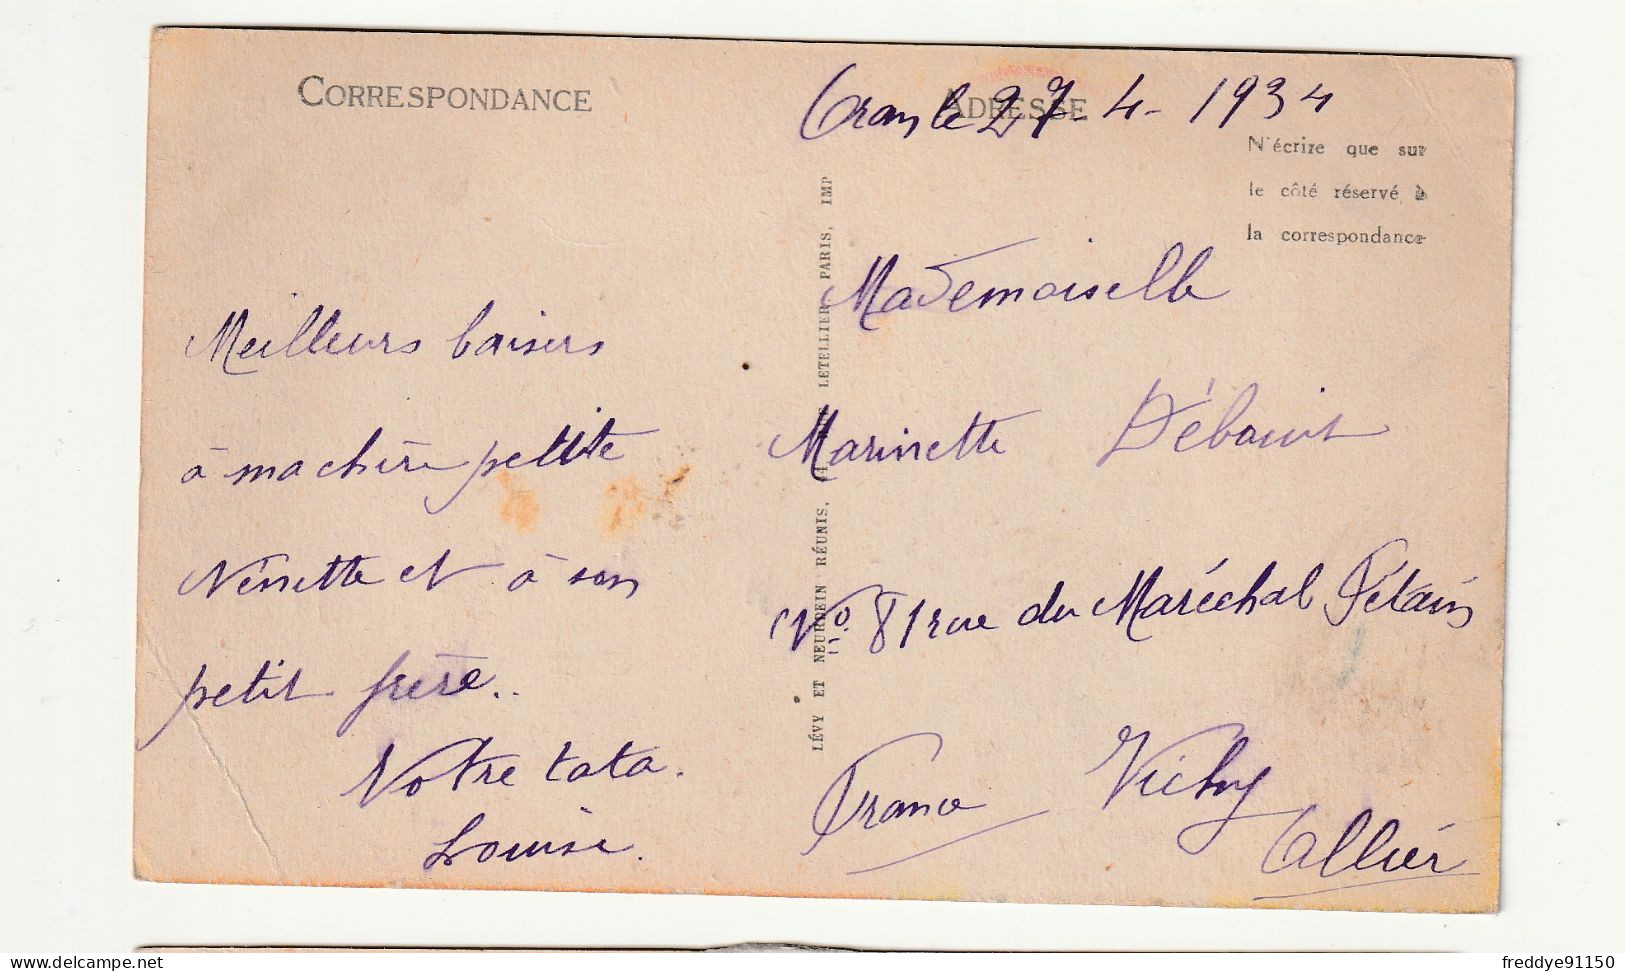 CORRESPONDANCE
ADRESSE
Oran le 27-4-1934
N'écrire que sur
le côté réservé à
la correspondance
Meilleurs baisers
à ma chère petite
Nénette et à son
petit frère..
Votre tata.
Louise.
LÉVY ET NEURDEIN RÉUNIS, LETELLIER, PARIS, IMP
Mademoiselle
Marinette
No. 81 rue du Maréchal Pétain
France Vichy
Allier
freddye91150